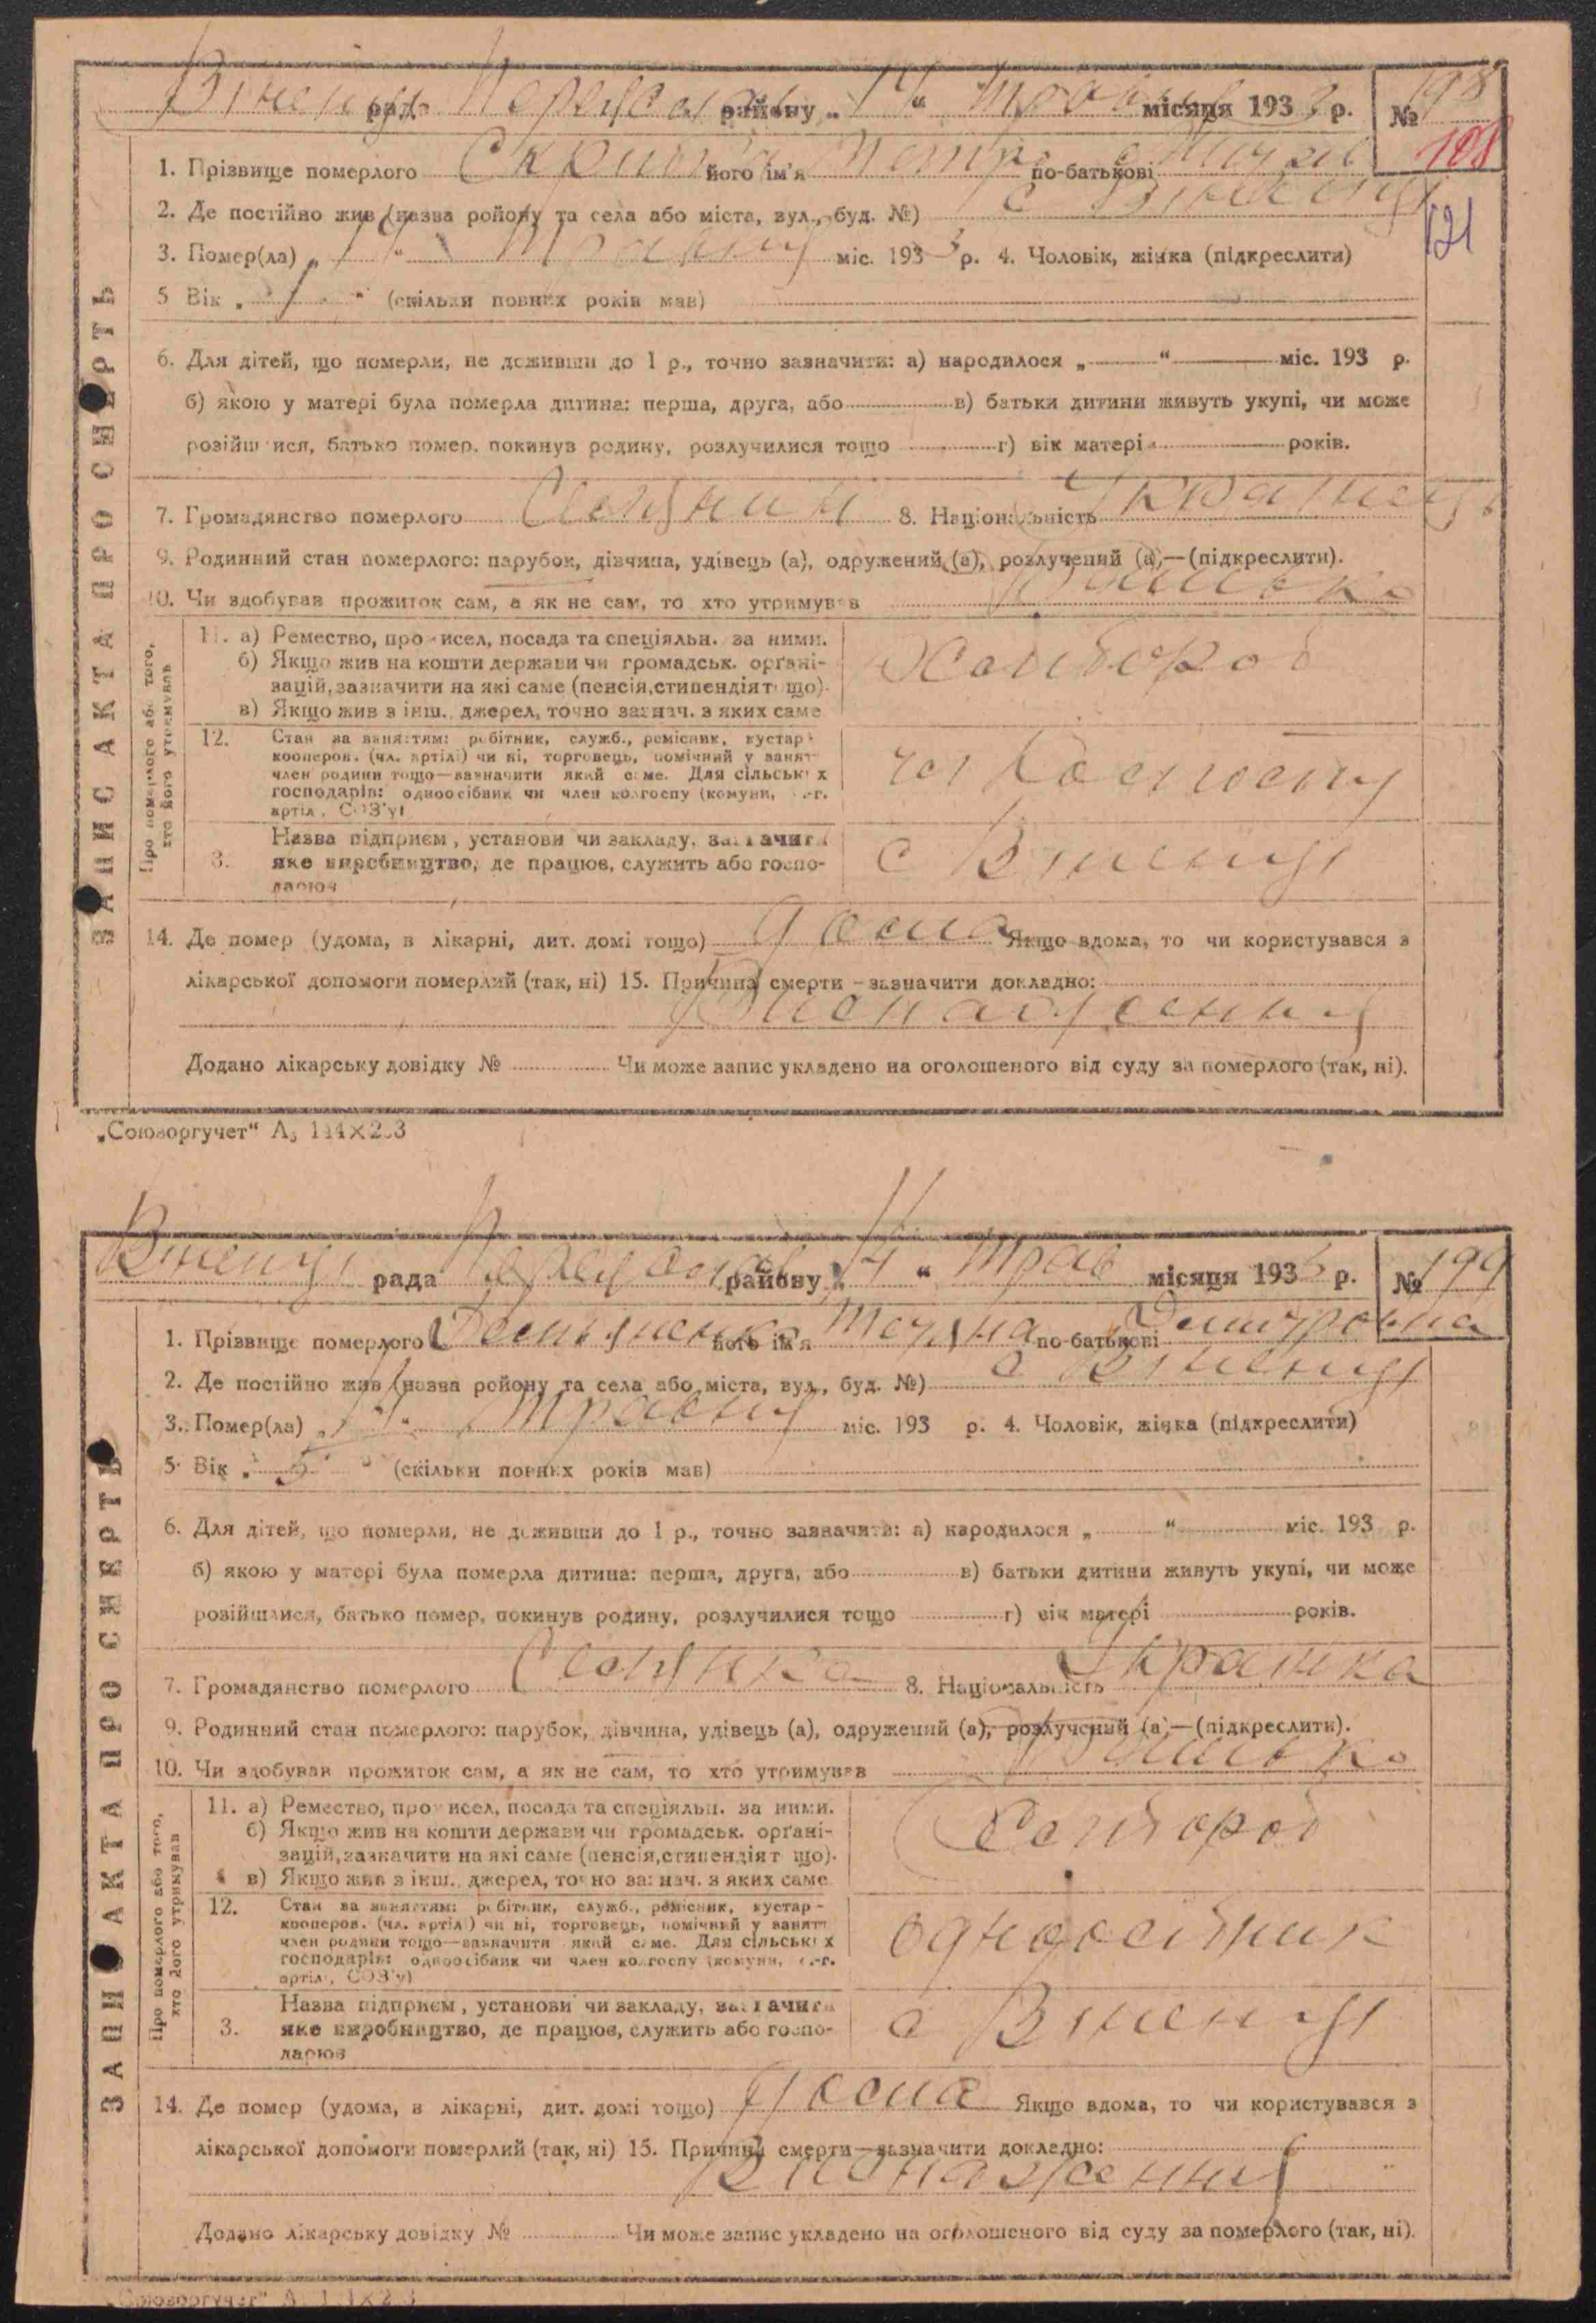 рада району „14“ Травня місяця 1933 р. № 198
108
1. Прізвище померлого його ім'я Петро по-батькові
2. Де постійно жив (назва району та села або міста, вул., буд. №) с Віненці
121
3. Помер(ла) „14“ Травня міс. 1933 р. 4. Чоловік, жінка (підкреслити)
5 Вік „1“ (скільки повних років мав)
6. Для дітей, що померли, не доживши до 1 р., точно зазначити: а) народилося „ “ міс. 193 р.
б) якою у матері була померла дитина: перша, друга, або в) батьки дитини живуть укупі, чи може
розійшлися, батько помер, покинув родину, розлучилися тощо г) вік матері років.
7. Громадянство померлого Селянин 8. Національність Українець
9. Родинний стан померлого: парубок, дівчина, удівець (а), одружений (а), розлучений (а)—(підкреслити).
10. Чи здобував прожиток сам, а як не сам, то хто утримував Батько
ЗАПИС АКТА ПРО СМЕРТЬ
Про померлого або того, хто його утримував
11. а) Ремество, промисел, посада та спеціяльн. за ними.
б) Якщо жив на кошти держави чи громадськ. орґані-
зацій, зазначити на які саме (пенсія, стипендія тощо).
в) Якщо жив з інш. джерел, точно зазнач. з яких саме
Хлібороб
12. Стан за заняттям: робітник, служб., ремісник, кустар-
кооперов. (чл. артілі) чи ні, торговець, помічний у занятт
член родини тощо—зазначити який саме. Для сільських
господарів: одноосібник чи член колгоспу (комуни, с.-г.
артілі, СОЗ'у)
чл Колгоспу
3. Назва підприєм., установи чи закладу, зазначити
яке виробництво, де працює, служить або госпо-
дарює
с Віненці
14. Де помер (удома, в лікарні, дит. домі тощо) Дома Якщо вдома, то чи користувався з
лікарської допомоги померлий (так, ні) 15. Причина смерти—зазначити докладно:
Виснаження
Додано лікарську довідку № Чи може запис укладено на оголошеного від суду за померлого (так, ні).
„Союзоргучет“ А5 144×203
Віненці рада району „14“ Трав місяця 1933 р. № 199
1. Прізвище померлого його ім'я по-батькові Дмитровна
2. Де постійно жив (назва району та села або міста, вул., буд. №) с Віненці
3. Помер(ла) „14“ Травня міс. 193 р. 4. Чоловік, жінка (підкреслити)
5. Вік „5“ (скільки повних років мав)
6. Для дітей, що померли, не доживши до 1 р., точно зазначити: а) народилося „ “ міс. 193 р.
б) якою у матері була померла дитина: перша, друга, або в) батьки дитини живуть укупі, чи може
розійшлися, батько помер, покинув родину, розлучилися тощо г) вік матері років.
7. Громадянство померлого Селянка 8. Національність Українка
9. Родинний стан померлого: парубок, дівчина, удівець (а), одружений (а), розлучений (а)—(підкреслити).
10. Чи здобував прожиток сам, а як не сам, то хто утримував Батько
ЗАПИС АКТА ПРО СМЕРТЬ
Про померлого або того, хто його утримував
11. а) Ремество, промисел, посада та спеціяльн. за ними.
б) Якщо жив на кошти держави чи громадськ. орґані-
зацій, зазначити на які саме (пенсія, стипендія тощо).
в) Якщо жив з інш. джерел, точно зазнач. з яких саме
Хлібороб
12. Стан за заняттям: робітник, служб., ремісник, кустар-
кооперов. (чл. артілі) чи ні, торговець, помічний у занятт
член родини тощо—зазначити який саме. Для сільських
господарів: одноосібник чи член колгоспу (комуни, с.-г.
артілі, СОЗ'у)
одноосібник
3. Назва підприєм., установи чи закладу, зазначити
яке виробництво, де працює, служить або госпо-
дарює
с Віненці
14. Де помер (удома, в лікарні, дит. домі тощо) Дома Якщо вдома, то чи користувався з
лікарської допомоги померлий (так, ні) 15. Причина смерти—зазначити докладно:
Виснаження
Додано лікарську довідку № Чи може запис укладено на оголошеного від суду за померлого (так, ні).
„Союзоргучет“ А